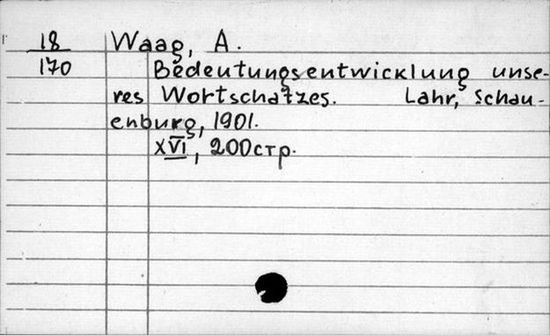 18 Waag, A.
170 Bedeutungsentwicklung unse-
res Wortschatzes. Lahr, Schau-
enburg, 1901.
XVI, 200стр.